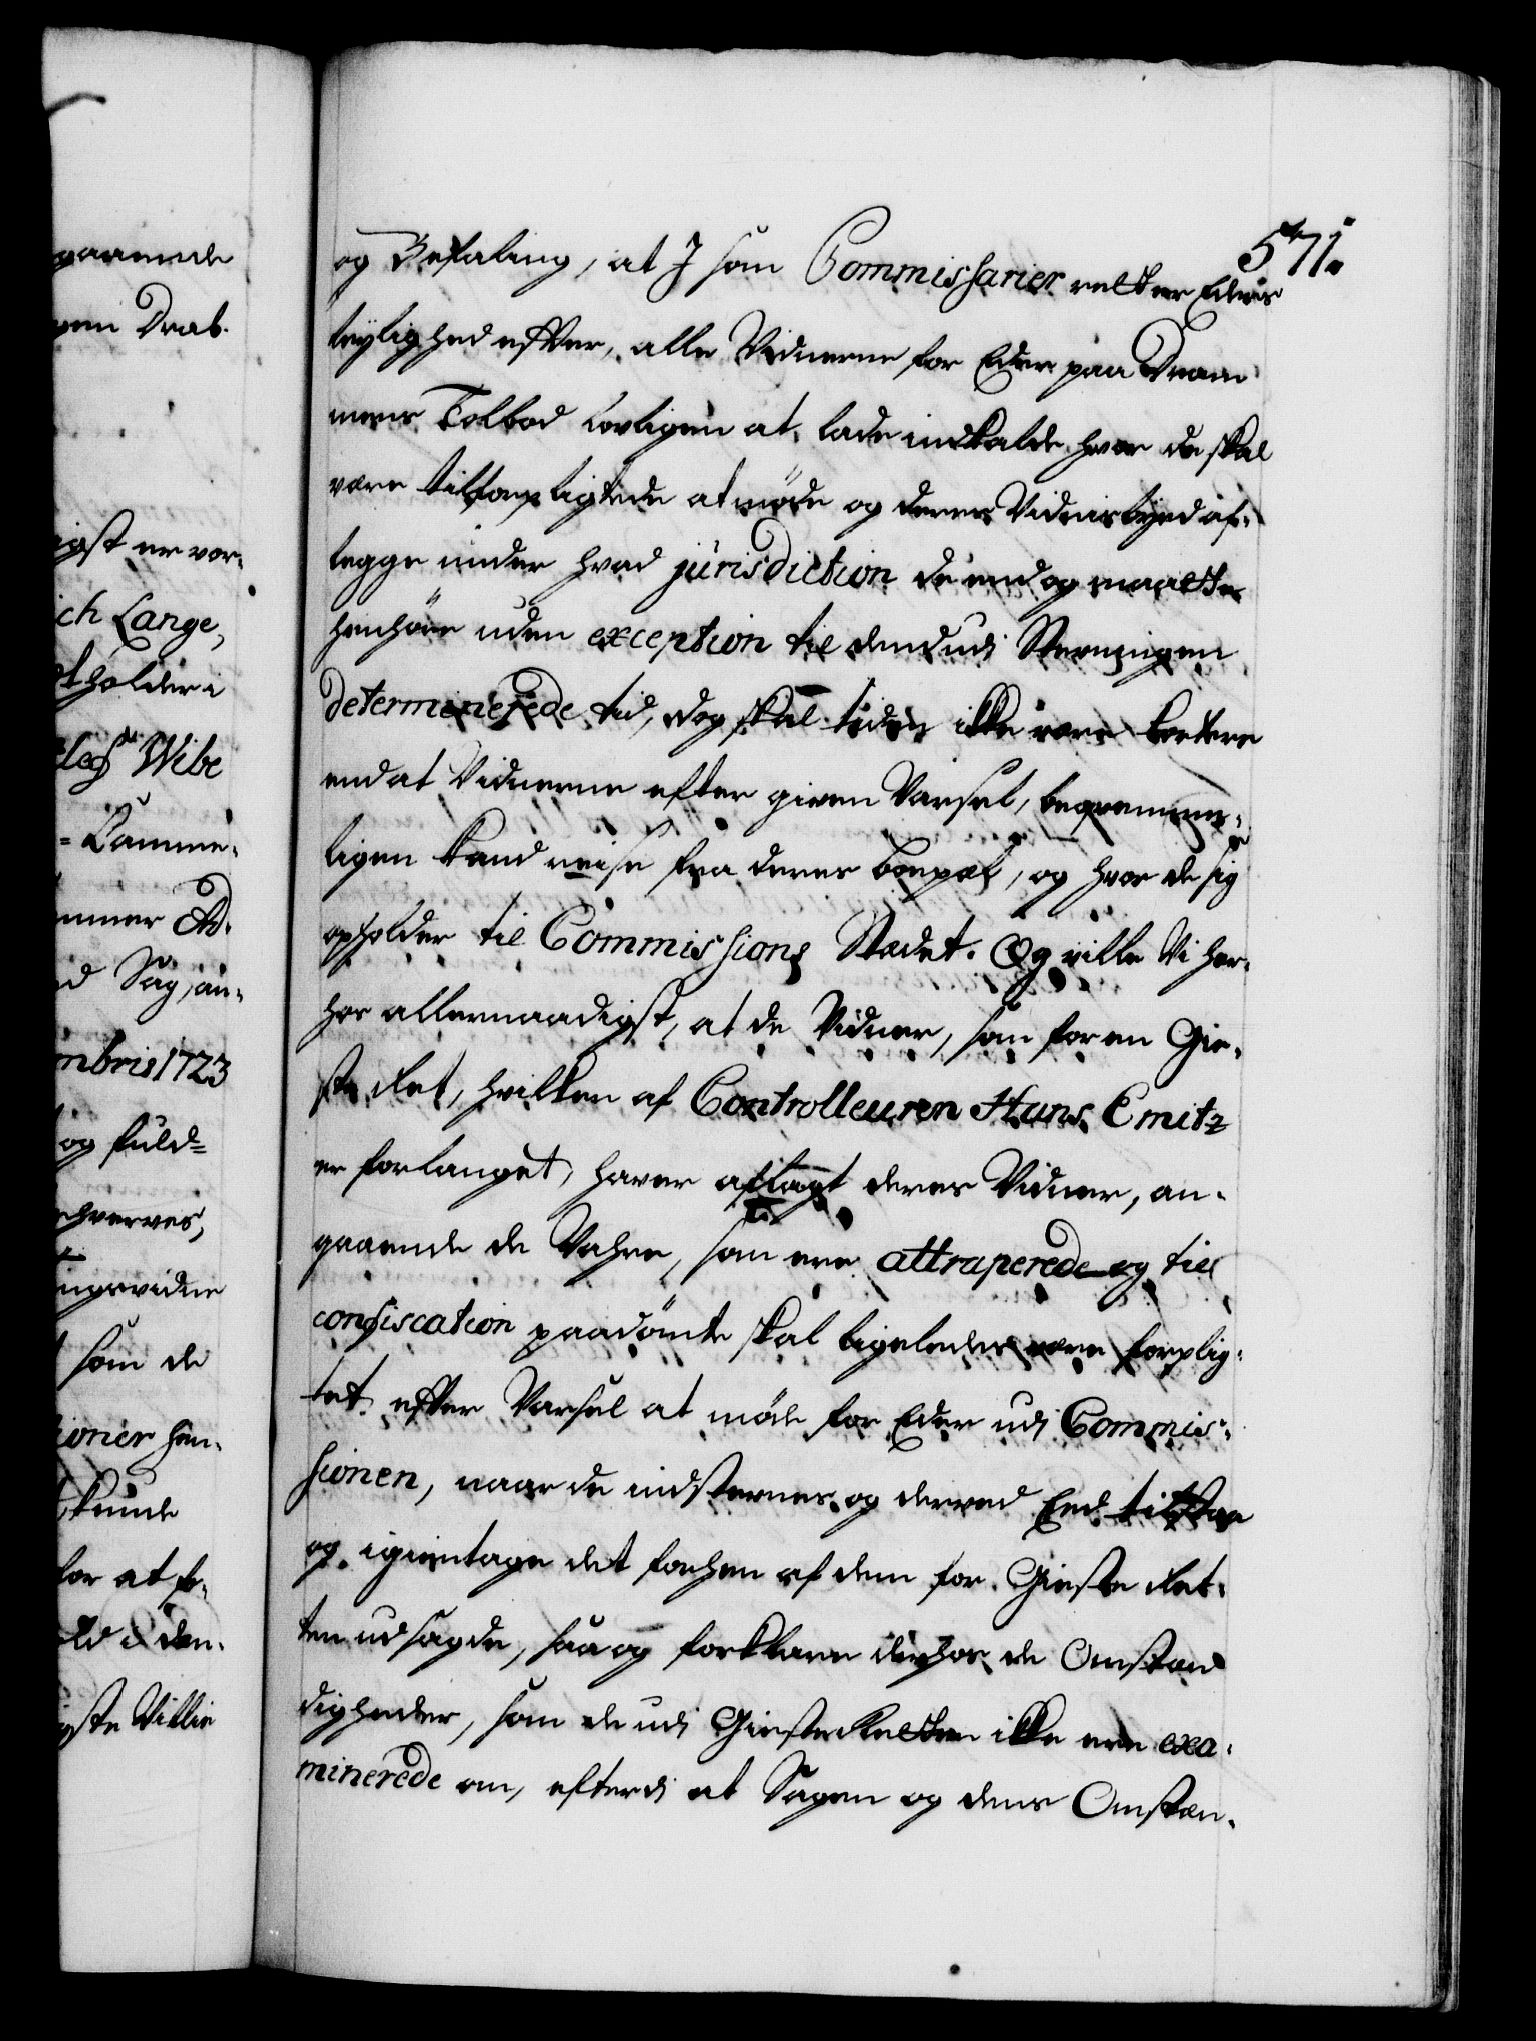 571.
og Befaling, at I som Commissarier retter Eders
leylighed effter, alle Vidnerne for Eder paa Dram
mens Tolbod lovligen at lade indkalde hvor de skal
være tilforpligtede at møde og deres Vidnisbyrd af-
legge under hvad jurisdiction de endog maatte
henhöre uden exception til dend udi Stevningen
determinerede tid, dog skal tiden ikke være kortere
end at Vidnerne efter given Varsel, beqvemme-
ligen kand reise fra deres boepæl, og hvor de sig
opholder til Commissions Stædet. Og ville Vi her-
hos allernaadigst, at de Vidner, som for en Gie-
ste Ret, hvilken af Controlleuren Hans Emitz
er forlanget, haver aflagt deres Vidner, an-
gaaende de Vahre, som ere attraperede og til
confiscation paadömte skal ligeledes være forplig-
tet effter Varsel at möde for Eder udi Commis-
sionen, naar de indstevnes og derved Eed tilstaae
og igientage det forhen af dem for Gieste Ret-
ten udsagde, saa og forklare derhos de Omstæn
digheder, som de udi Giesteretten ikke ere exa-
minerede om, efterdi at Sagen og dens Omstæn-
gaaende
gen Drab.
igst er vor-
ich Lange,
holder i
Wibe
Camme-
d Sag, an-
mbris 1723
og fuld-
hverves,
ngsvidne
som de
ioner hen-
kunde
for at
gste Villie